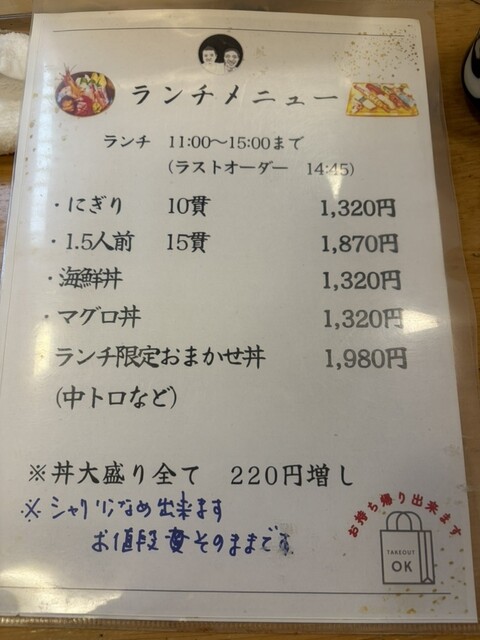 ランチメニュー
ランチ 11:00～15:00まで
(ラストオーダー 14:45)
・にぎり 10貫 1,320円
・1.5人前 15貫 1,870円
・海鮮丼 1,320円
・マグロ丼 1,320円
・ランチ限定おまかせ丼 1,980円
(中トロなど)
※丼大盛り全て 220円増し
※シャリ少なめ出来ます
お値段そのままです
お持ち帰り出来ます
TAKEOUT
OK